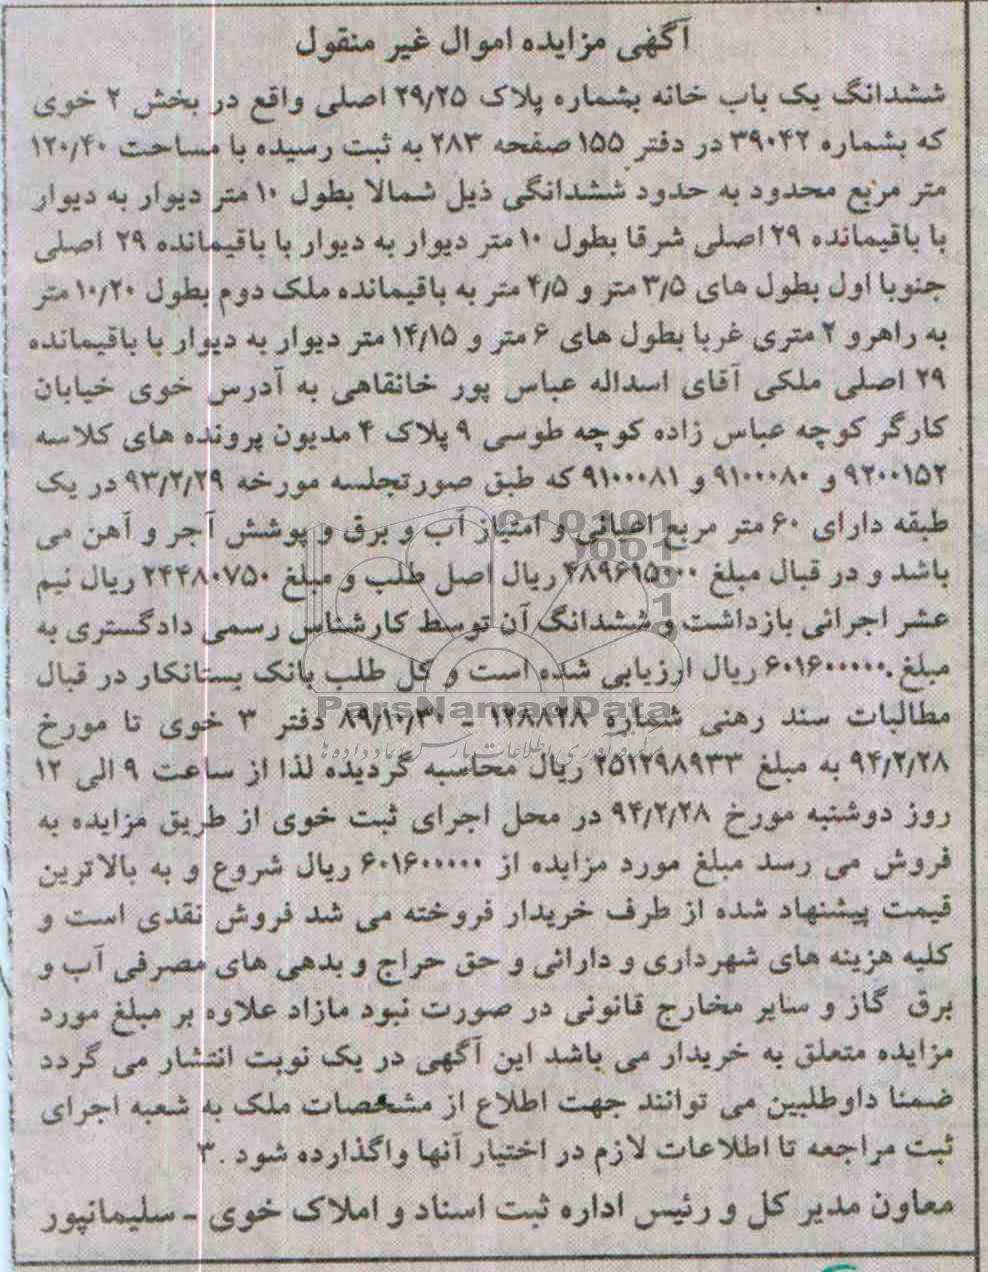 آگهی مزایده اموال غیر منقول
ششدانگ یک باب خانه بشماره پلاک ۲۹/۲۵ اصلی واقع در بخش ۲ خوی
که بشماره ۳۹۰۴۲ در دفتر ۱۵۵ صفحه ۲۸۳ به ثبت رسیده با مساحت ۱۲۰/۴۰
متر مربع محدود به حدود ششدانگی ذیل شمالا بطول ۱۰ متر دیوار به دیوار
با باقیمانده ۲۹ اصلی شرقا بطول ۱۰ متر دیوار به دیوار با باقیمانده ۲۹ اصلی
جنوبا اول بطول های ۳/۵ متر و ۴/۵ متر به باقیمانده ملک دوم بطول ۱۰/۲۰ متر
به راهرو ۲ متری غربا بطول های ۶ متر و ۱۴/۱۵ متر دیوار به دیوار با باقیمانده
۲۹ اصلی ملکی آقای اسداله عباس پور خانقاهی به آدرس خوی خیابان
کارگر کوچه عباس زاده کوچه طوسی ۹ پلاک ۴ مدیون پرونده های کلاسه
۹۲۰۰۱۵۲ و ۹۱۰۰۰۸۰ و ۹۱۰۰۰۸۱ که طبق صورتجلسه مورخه ۹۳/۲/۲۹ در یک
طبقه دارای ۶۰ متر مربع اعیانی و امتیاز آب و برق و پوشش آجر و آهن می
باشد و در قبال مبلغ ۴۸۹۶۱۵۰۰۰ ریال اصل طلب و مبلغ ۲۴۴۸۰۷۵۰ ریال نیم
عشر اجرائی بازداشت و ششدانگ آن توسط کارشناس رسمی دادگستری به
مبلغ ۶۰۱۶۰۰۰۰۰ ریال ارزیابی شده است و کل طلب بانک بستانکار در قبال
مطالبات سند رهنی شماره ۱۲۸۸۲۸ - ۸۹/۱۰/۳۰ دفتر ۳ خوی تا مورخ
۹۴/۲/۲۸ به مبلغ ۲۵۱۲۹۸۹۳۳ ریال محاسبه گردیده لذا از ساعت ۹ الی ۱۲
روز دوشنبه مورخ ۹۴/۲/۲۸ در محل اجرای ثبت خوی از طریق مزایده به
فروش می رسد مبلغ مورد مزایده از ۶۰۱۶۰۰۰۰۰ ریال شروع و به بالاترین
قیمت پیشنهاد شده از طرف خریدار فروخته می شد فروش نقدی است و
کلیه هزینه های شهرداری و دارائی و حق حراج و بدهی های مصرفی آب و
برق گاز و سایر مخارج قانونی در صورت نبود مازاد علاوه بر مبلغ مورد
مزایده متعلق به خریدار می باشد این آگهی در یک نوبت انتشار می گردد
ضمنا داوطلبین می توانند جهت اطلاع از مشخصات ملک به شعبه اجرای
ثبت مراجعه تا اطلاعات لازم در اختیار آنها واگذارده شود .۳
معاون مدیر کل و رئیس اداره ثبت اسناد و املاک خوی - سلیمانپور
ParsNamadData